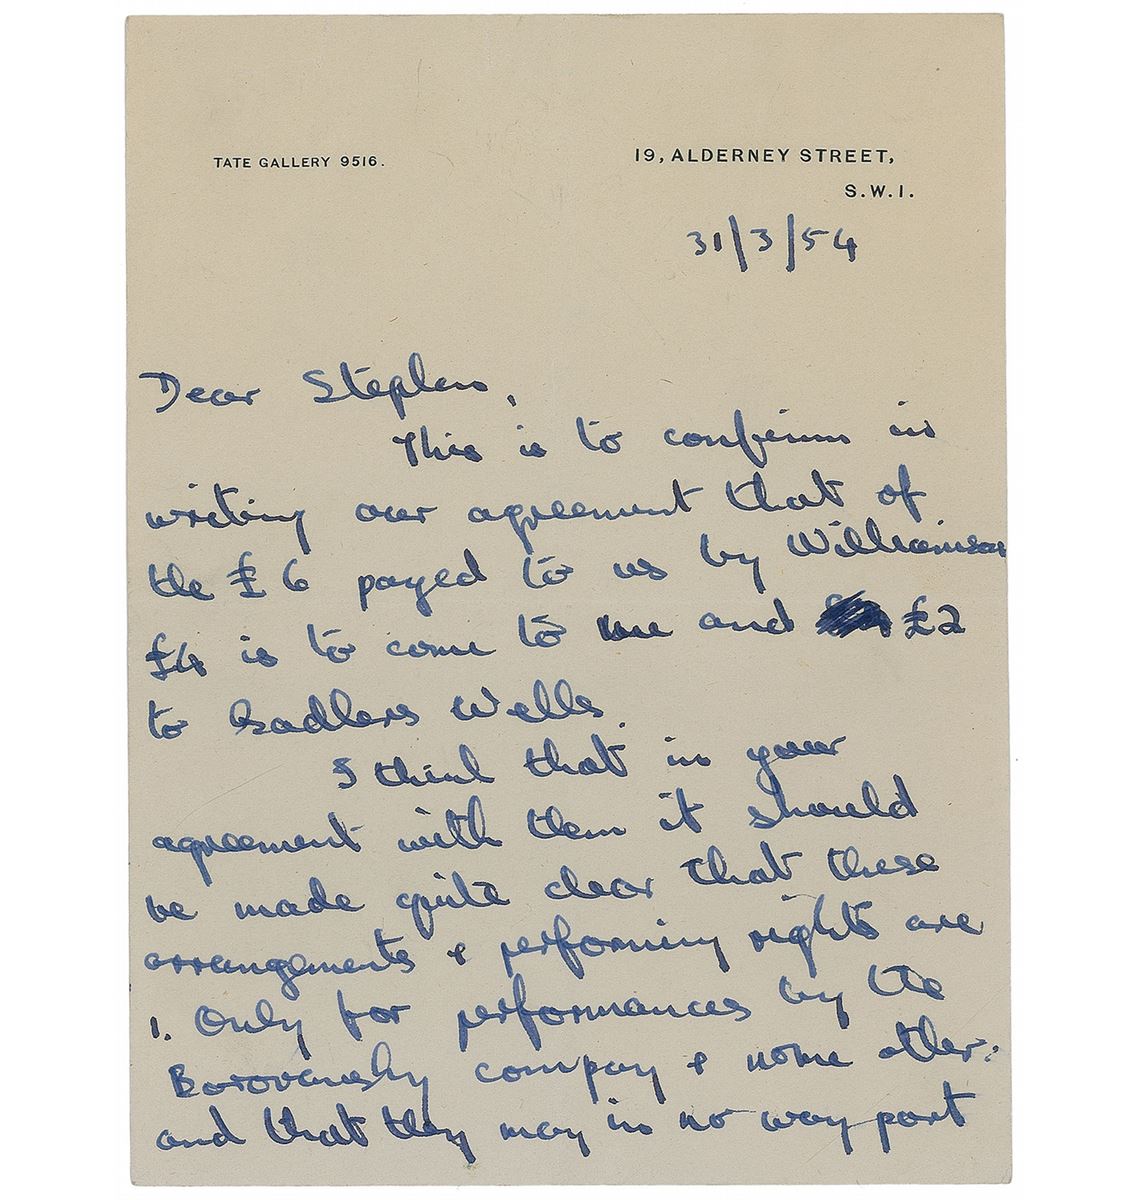 TATE GALLERY 9516.
19, ALDERNEY STREET,
S.W.1.
31/3/54
Dear Stephen,
This is to confirm in
writing our agreement that of
the £6 payed to us by Williamson
£4 is to come to me and £2
to Sadlers Wells.
I think that in your
agreement with them it should
be made quite clear that these
arrangements & performing rights are
1. Only for performances by the
Borovansky company & none other:
and that they may in no way part